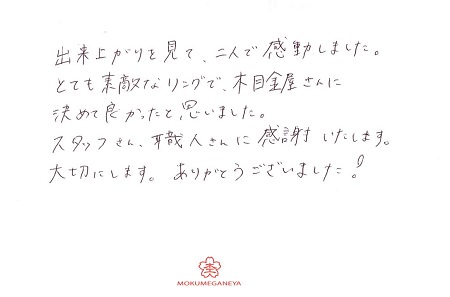 出来上がりを見て、二人で感動しました。
とても素敵なリングで、木目金屋さんに
決めて良かったと思いました。
スタッフさん、職人さんに感謝いたします。
大切にします。ありがとうございました！
MOKUMEGANEYA